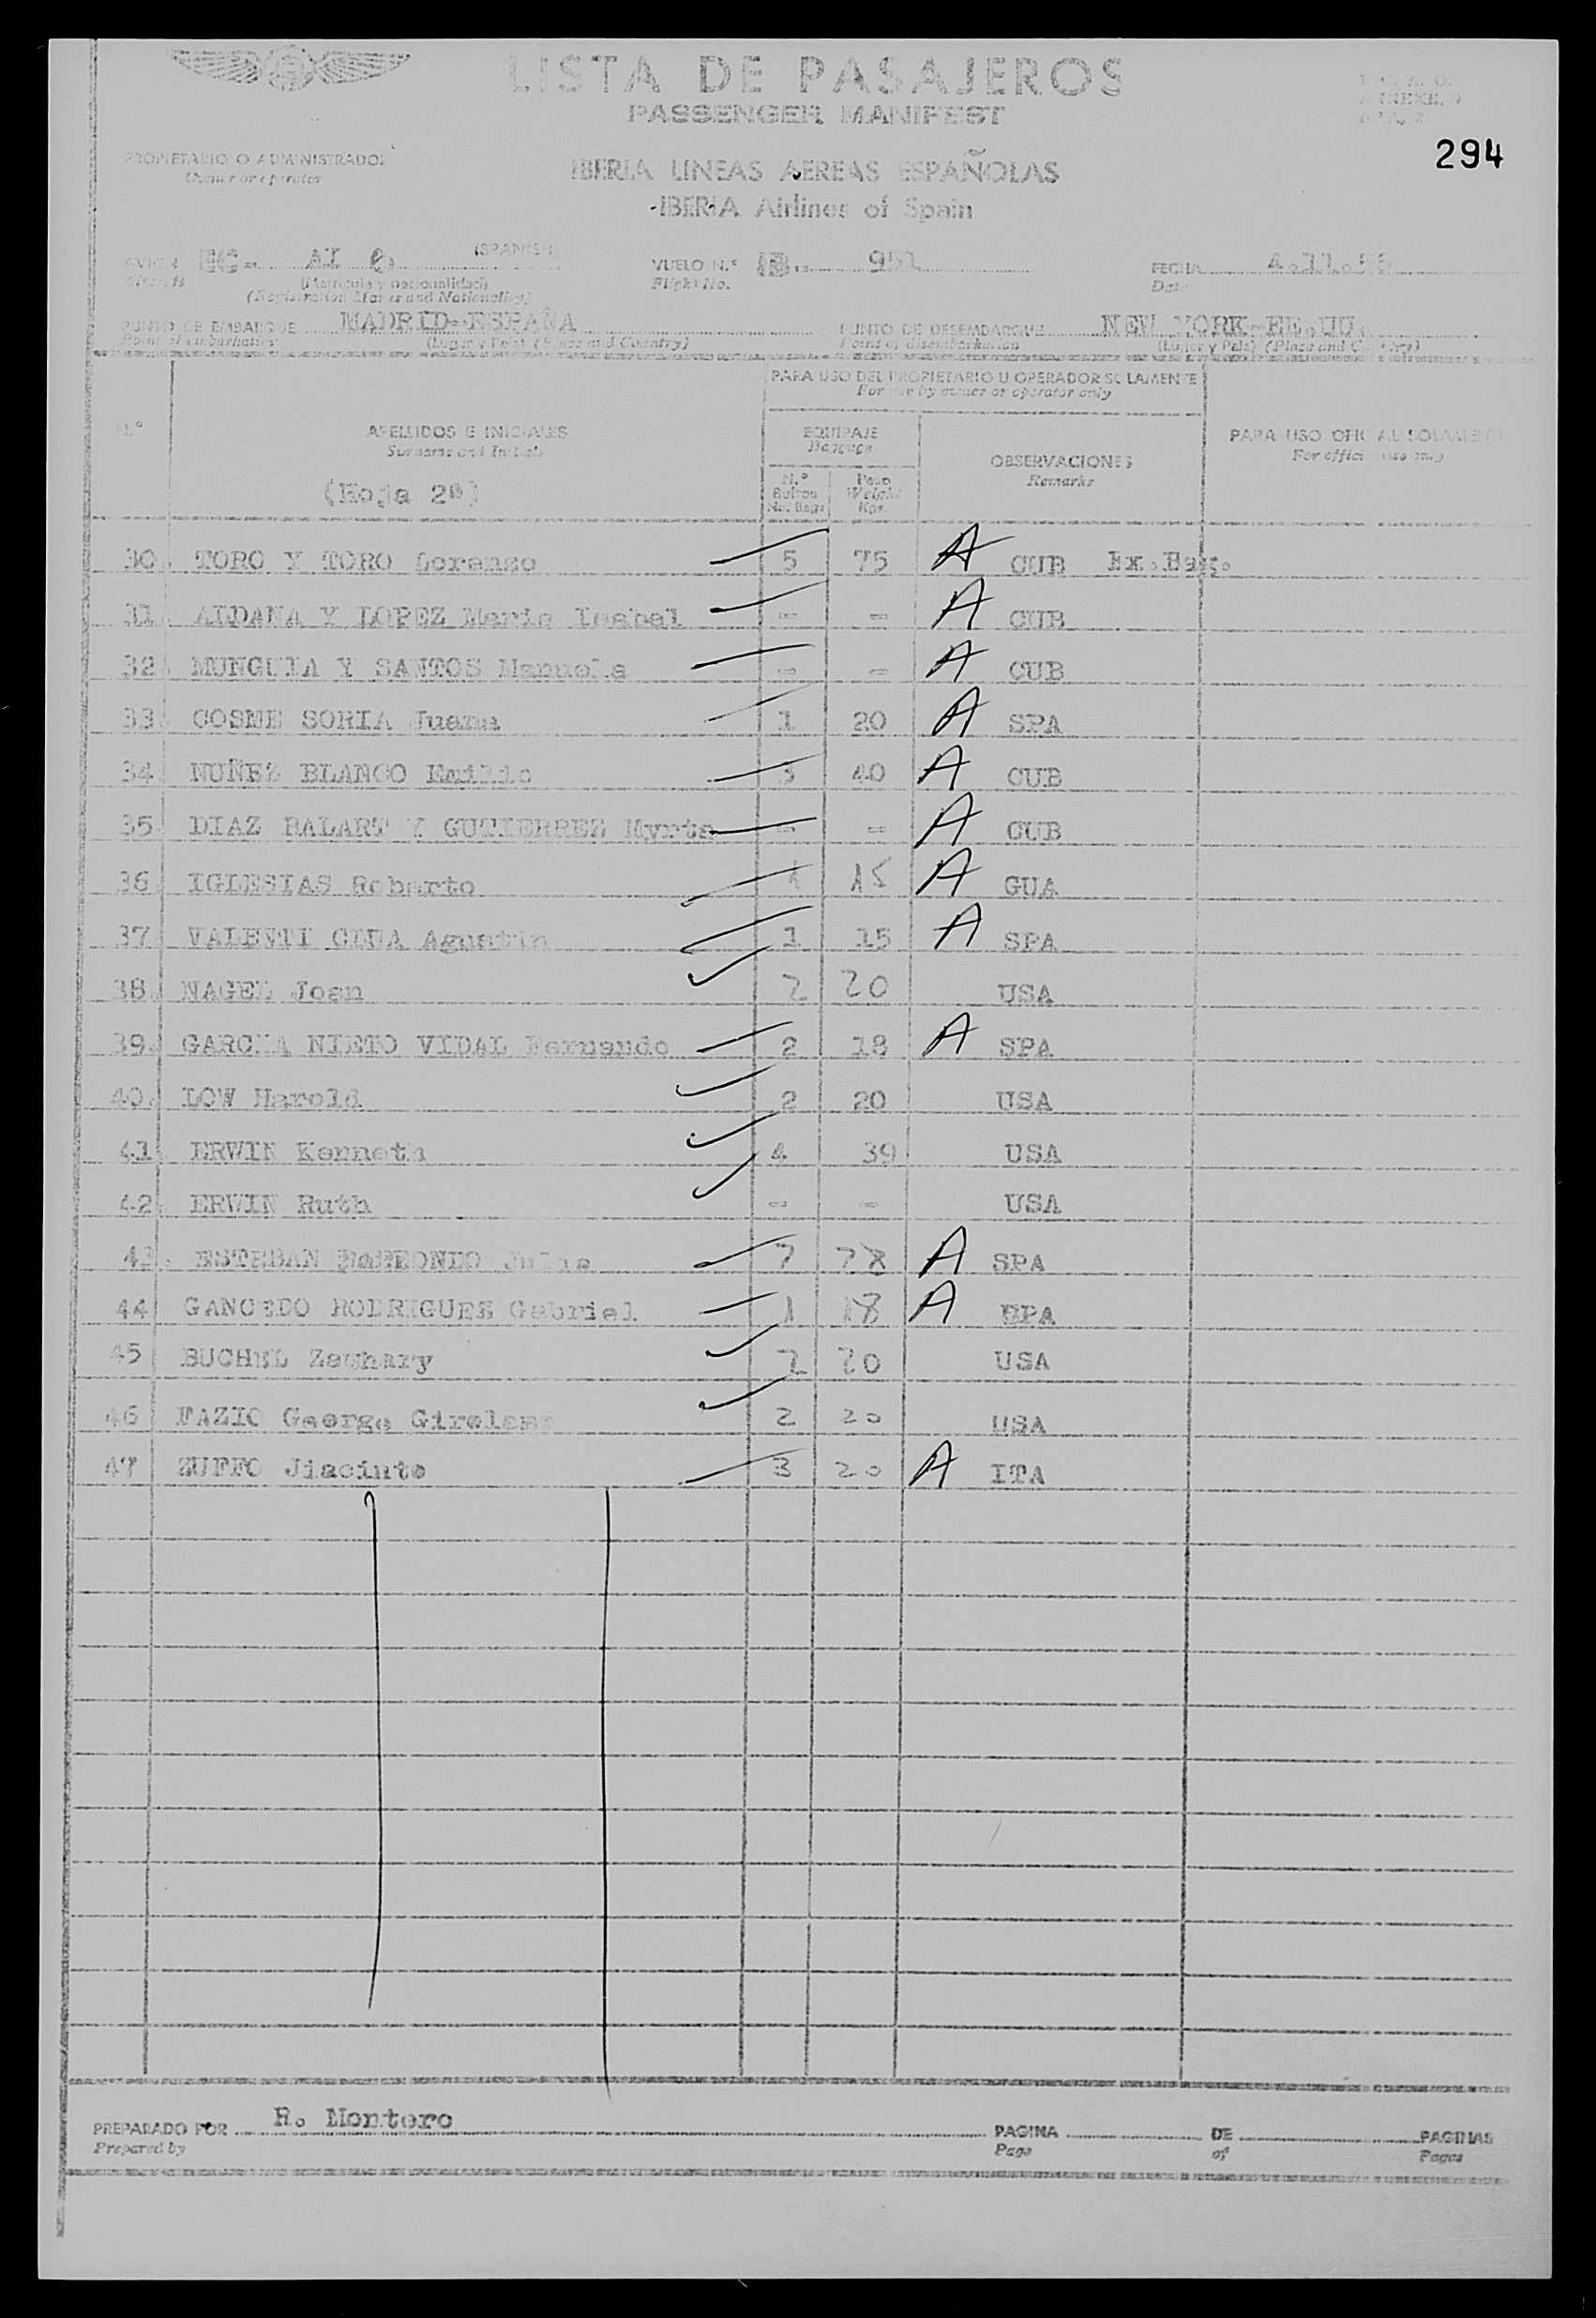 LISTA DE PASAJEROS
PASSENGER MANIFEST
294
PROPIETARIO O ADMINISTRADOR
Owner or operator
IBERIA LINEAS AEREAS ESPAÑOLAS
IBERIA Airlines of Spain
AVION EC- AI (SPANISH) VUELO N.º IB.- 951 FECHA 4.11.56
Aircraft (Matrícula y nacionalidad) Flight No. Date
(Registration Marks and Nationality)
PUNTO DE EMBARQUE MADRID-ESPAÑA PUNTO DE DESEMBARQUE NEW YORK-EE.UU.
Point of embarkation (Lugar y País) (Place and Country) Point of disembarkation (Lugar y País) (Place and Country)
PARA USO DEL PROPIETARIO U OPERADOR SOLAMENTE
For use by owner or operator only
N.º APELLIDOS E INICIALES EQUIPAJE OBSERVACIONES PARA USO OFICIAL SOLAMENTE
Surname and Initials Baggage Remarks For official use only
(Hoja 2ª) N.º Bultos No. Bags Peso Weight Kgs.
30. TORO Y TORO Lorenzo 5 75 A CUB Ex.Bag.
31. ALDAMA Y LOPEZ Maria Isabel - - A CUB
32. MUNGUIA Y SANTOS Manuela - - A CUB
33. COSME SORIA Juana 1 20 A SPA
34. NUÑEZ BLANCO Emilio 3 40 A CUB
35. DIAZ BALART Y GUTIERREZ Myrta - - A CUB
36. IGLESIAS Roberto 1 15 A GUA
37. VALENTI Agustin 1 15 A SPA
38. NAGEL Joan 2 20 USA
39. GARCIA NIETO VIDAL Fernando 2 18 A SPA
40. LOW Harold 2 20 USA
41. ERWIN Kenneth 4 39 USA
42. ERWIN Ruth - - USA
43. ESTEBAN A SPA
44 GANCEDO RODRIGUES Gabriel 1 18 A SPA
45 BUCHEL Zewhary 2 20 USA
46 FAZIO George 2 20 USA
47 ZUFFO Jiacinto 3 20 A ITA
PREPARADO POR R. Montero PAGINA DE PAGINAS
Prepared by Page of Pages